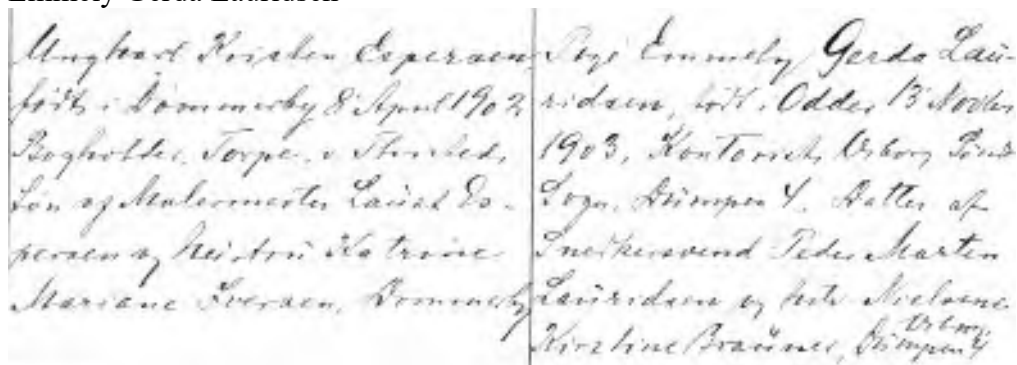 Emmely Gerda Lauridsen
Ungkarl Kristen Espersen
født i Dommerby 8 April 1902
Bogholder, Torpe v. Thisted,
Søn af Malermester Laust Es-
persen og Hustru Katrine
Mariane Iversen, Dommerby
Pige Emmely Gerda Lau-
ridsen, født i Odder 13 Novbr
1903, Kontorist, Viborg
Sogn, 4. Datter af
Snedkersvend Peder Marten
Lauridsen og Nielsine
Kirstine Brauner, Viborg, 4